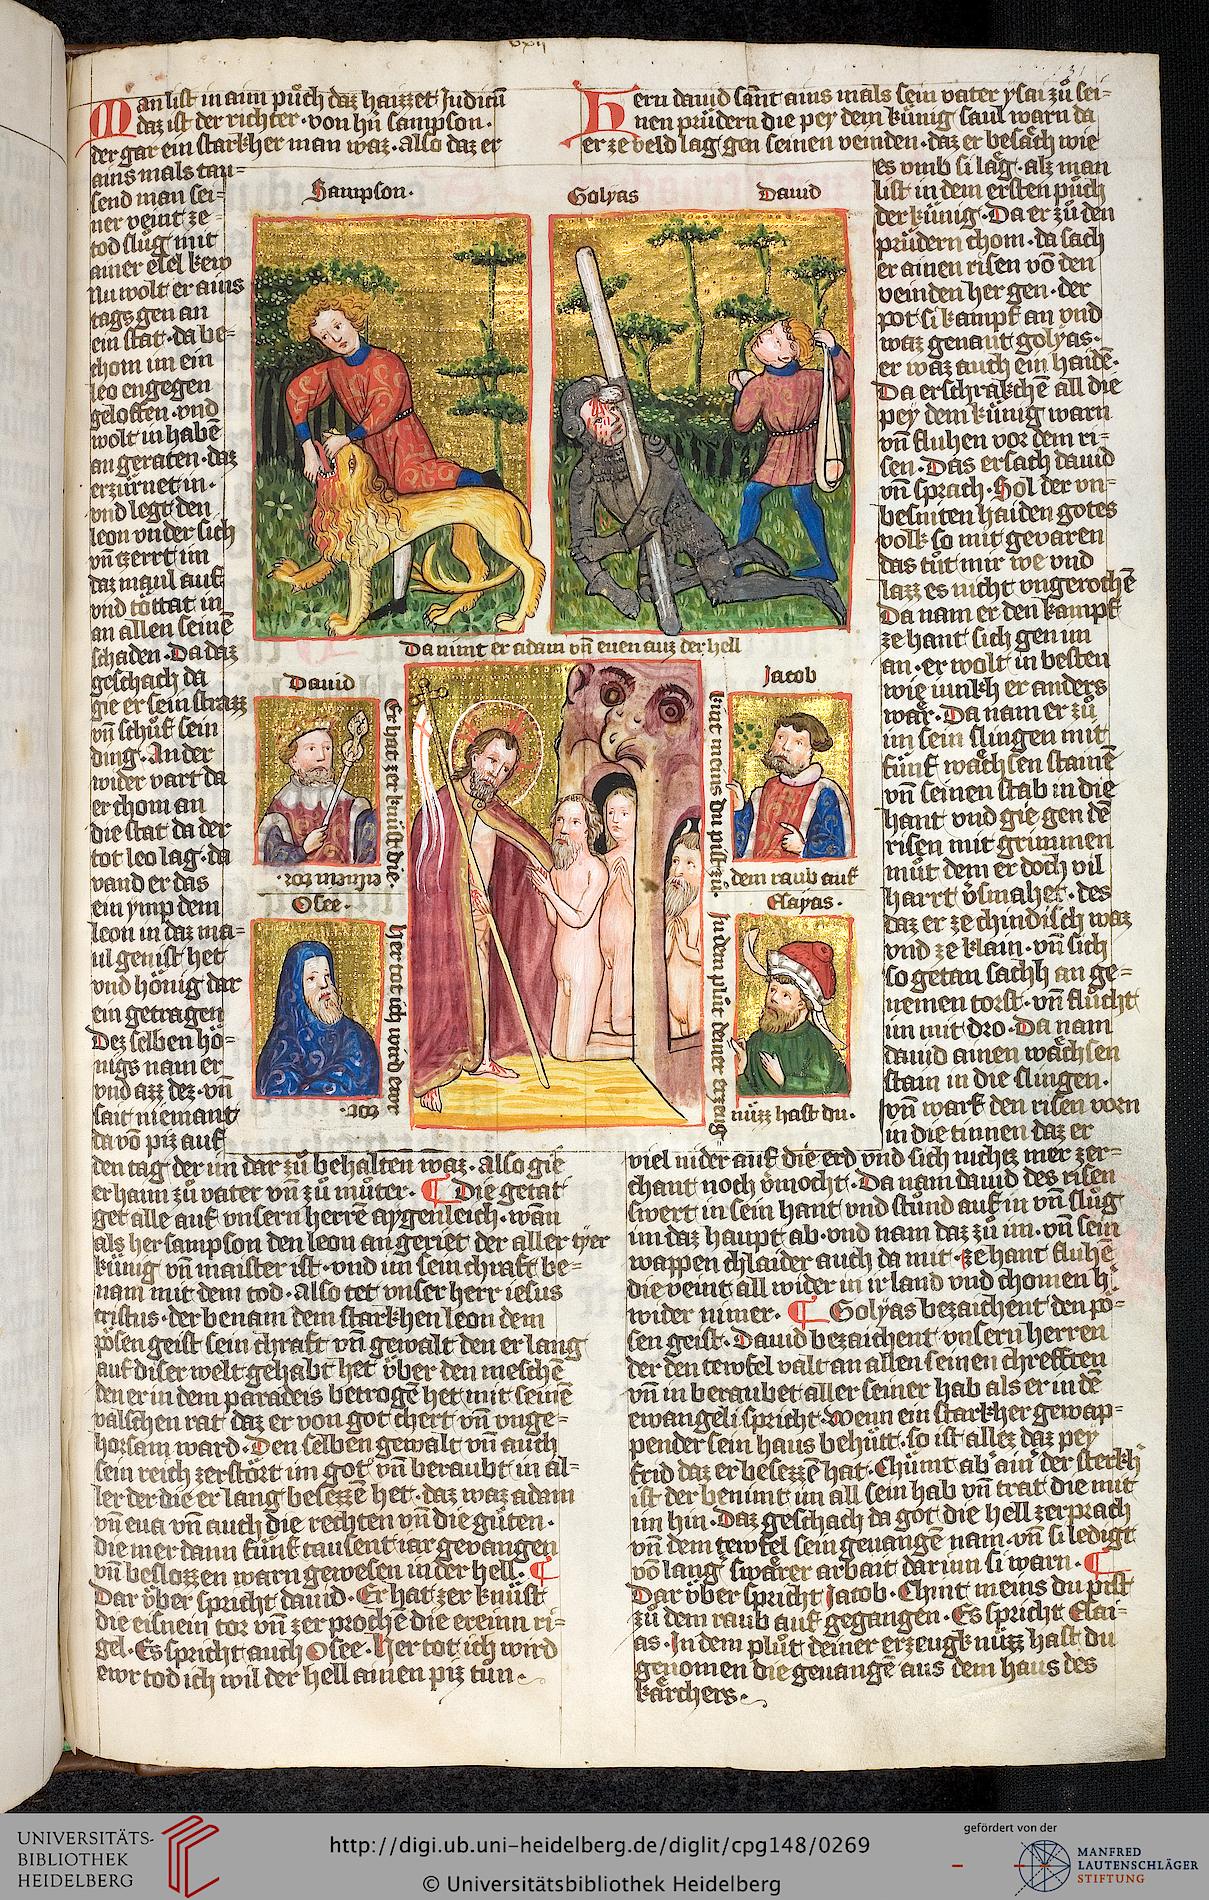 Man list in aim půch daz haizzet Judicū
daz ist der richter · von hn̄ sampson ·
der gar ein starkher man waz · also daz er
ains mals tau-
send man sei-
ner veint ze
tod slůg mit
ainer esel kew
Nu wolt er ains
tags gen an
ein stat · da be-
chom im ein
leo engegen
geloffen · vnd
wolt in habē
an geraten · daz
erzürnet in ·
vnd legt den
leon vnder sich
vn̄ tzerrt im
daz maul auf
vnd tottat in
an allen seinē
schaden · Da daz
geschach da
gie er sein strazz
vn̄ schůf sein
ding · An der
wider vart da
er chom an
die stat da der
tot leo lag · da
vand er das
ein ymp dem
leon in daz ma-
ul genist het
vnd hönig dar
ein getragen
Dez selben hö-
nigs nam er
vnd azz dez · vn̄
sait niemant
da vō piz auf
den tag der im dar zů behalten waz · also gie
er haim zů vater vn̄ zů můter · Die getat
get alle auf vnsern herrē aygenleich · wan̄
als her sampson den leon angeriet der aller tÿer
künig vn̄ maister ist · vnd im sein chraft be-
nam mit dem tod · also tet vnser herr iesus
cristus · der benam dem starkhen leon dem
pösen geist sein chraft vn̄ gewalt den er lang
auf diser welt gehabt het v̈ber den meschē
den er in dem paradeis betrogē het mit seinē
valschen rat daz er von got chert vn̄ unge-
horsam ward · Den selben gewalt vn̄ auch
sein reich zerstört im got vn̄ beraubt in al-
ler der die er lang besezzē het · daz waz adam
vn̄ eua vn̄ auch die rechten vn̄ die gůten ·
die mer dann fünf tausent iar gevangen
vn̄ beslozzen warn gewesen in der hell ·
Dar öber spricht dauid · Er hat zer knüst
die eisnein tor vn̄ zer prochē die ereinn ri-
gel · Es spricht auch Osee · Her tot ich wird
ewr tod ich wil der hell ainen piz tůn ·
Hern dauid sant ains mals sein vater ysai zů sei-
nen prüdern die pey dem künig saul warn da
er ze veld lag gen seinen veinden · daz er besäch wie
es vmb si läg · alz man
list in dem ersten půch
der künig · Da er zů den
prüdern chom · da sach
er ainen risen vō den
veinden her gen · der
pot si kampf an vnd
waz genant golyas ·
er waz auch ein haidē ·
Da erschrakchē all die
pey dem künig warn
vn̄ fluhen vor dem ri-
sen · Das ersach dauid
vn̄ sprach · Sol der vn-
besniten haiden gotes
volk so mit gevaren
das tůt mir we vnd
lazz es nicht vngerochē
Da nam er den kampf
ze hant sich gen im
an · er wolt in besten
wie uinkh er anders
wär · Da nam er zů
im sein slingen mit
fünf wächsen stainē
vn̄ seinen stab in die
hant vnd gie gen dē
risen mit grimmen
můt dem er doch vil
harrt v̄smahet · des
daz er ze chindisch waz
vnd ze klain · vn̄ sich
so getan sachh an ge-
nemen torst · vn̄ flücht
im mit dro · Da nam
dauid ainen wächsen
stain in die slingen ·
vn̄ warf den risen vorn
in die tinnen daz er
viel nider auf die erd vnd sich nichtz mer zer-
chant noch v̄mocht · Da nam dauid des risen
swert in sein hant vnd stůnd auf in vn̄ slůg
im daz haupt ab · vnd nam daz zů im · vn̄ sein
wappen chlaider auch da mit · ze hant fluhē
die veint all wider in ir land vnd chomen h'
wider nimer · Golyas bezaichent den pö-
sen geist · Dauid bezaichent vnsern herren
der den tewfel valt an allen seinen chrefften
vn̄ in beraubet aller seiner hab als er in dē
ewangeli spricht · Wenn ein starkher gewap-
penter sein haus behütt · so ist allez daz pey
frid daz er besezzē hat · Chümt ab' ain' der sterkh'
ist der benimt im all sein hab vn̄ trat die mit
im hin · Daz geschach da got die hell zerprach
vn̄ dem tewfel sein geuangē nam · vn̄ si ledigt
vō lang' swärer arbait dar inn si warn ·
Dar öber spricht Jacob · Chint meins du pist
zů dem raub auf gegangen · Es spricht Elai-
as · In dem plůt deiner erzeugknüzz hast du
genomen die geuangē aus dem haus des
kärchers ·
Sampson ·
Golyas Dauid
Da nimt er adam vn̄ euen auz der hell
Dauid
Er hat zer knüst die ·
eisnein tor ·
Jacob
kint meins du pist zů ·
dem raub auf
Osee ·
her tot ich wird ewr
tod ·
Esayas ·
In dem plůt deiner erzeug
nüzz hast du ·
UNIVERSITÄTS-
BIBLIOTHEK
HEIDELBERG
http://digi.ub.uni-heidelberg.de/diglit/cpg148/0269
© Universitätsbibliothek Heidelberg
gefördert von der
MANFRED
LAUTENSCHLÄGER
STIFTUNG